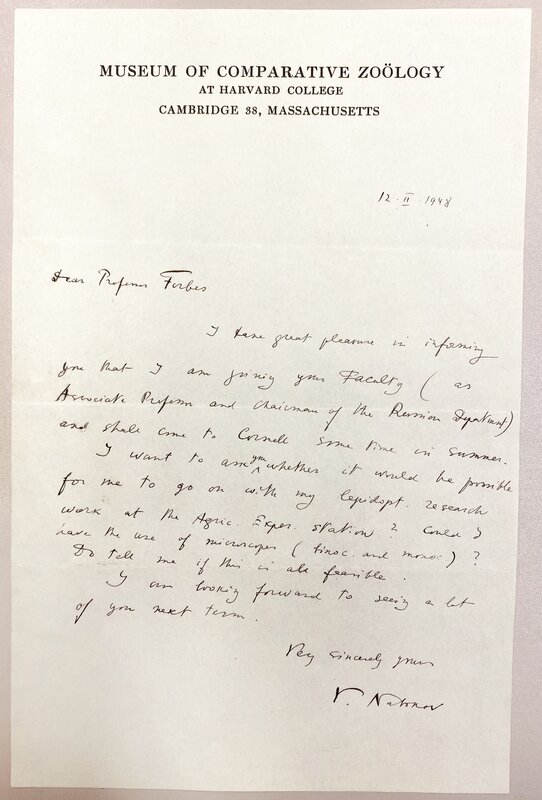 MUSEUM OF COMPARATIVE ZOÖLOGY
AT HARVARD COLLEGE
CAMBRIDGE 38, MASSACHUSETTS
12 · II · 1948
Dear Professor Forbes
I have great pleasure in informing
you that I am joining your Faculty (as
Associate Professor and chairman of the Russian Department)
and shall come to Cornell some time in summer.
I want to ask you whether it would be possible
for me to go on with my lepidopt. research
work at the Agric. Exper. station? Could I
have the use of microscopes (binoc. and monoc.)?
Do tell me if this is all feasible.
I am looking forward to seeing a lot
of you next term.
Very sincerely yours
V. Nabokov